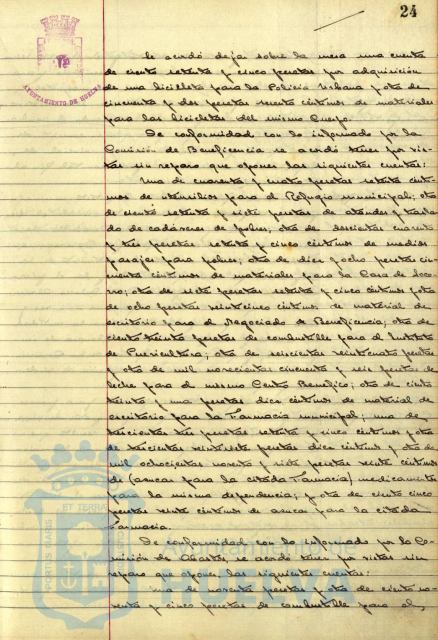 24
AYUNTAMIENTO DE HUELVA
Se acordó dejar sobre la mesa una cuenta
de ciento setenta y cinco pesetas por adquisición
de una bicicleta para la Policía Urbana y otra de
cincuenta y dos pesetas sesenta céntimos de materiales
para las bicicletas del mismo Cuerpo.
De conformidad con lo informado por la
Comisión de Beneficencia se acordó tener por vis-
tas sin reparo que oponer las siguientes cuentas:
Una de cuarenta y cuatro pesetas setenta cénti-
mos de utensilios para el Refugio municipal; otra
de ciento setenta y siete pesetas de ataudes y trasla-
do de cadáveres de pobres; otra de doscientas cuarenta
y tres pesetas setenta y cinco céntimos de medios
pasajes para pobres; otra de diez y ocho pesetas cin-
cuenta céntimos de materiales para la Casa de Soco-
rro; otra de siete pesetas setenta y cinco céntimos y otra
de ocho pesetas veinticinco céntimos de material de
escritorio para el Negociado de Beneficencia; otra de
ciento treinta pesetas de combustible para el Instituto
de Puericultura; otra de seiscientas veinticuatro pesetas
y otra de mil novecientas cincuenta y seis pesetas de
leche para el mismo Centro Benéfico; otra de ciento
treinta y una pesetas diez céntimos de material de
escritorio para la Farmacia municipal; una de
trescientas tres pesetas setenta y cinco céntimos y otra
de trescientas veintisiete pesetas diez céntimos y otra de
mil ochocientas noventa y siete pesetas veinte céntimos
de (azucar para la citada Farmacia) medicamentos
para la misma dependencia; y otra de ciento cinco
pesetas veinte céntimos de azucar para la citada
Farmacia.
De conformidad con lo informado por la Co-
misión de Abastos, se acordó tener por vistas sin
reparo que oponer las siguientes cuentas:
una de noventa pesetas y otra de ciento no-
venta y cinco pesetas de combustible para el
PORTUS MARIS ET TERRAE
Ayuntamiento de
HUELVA